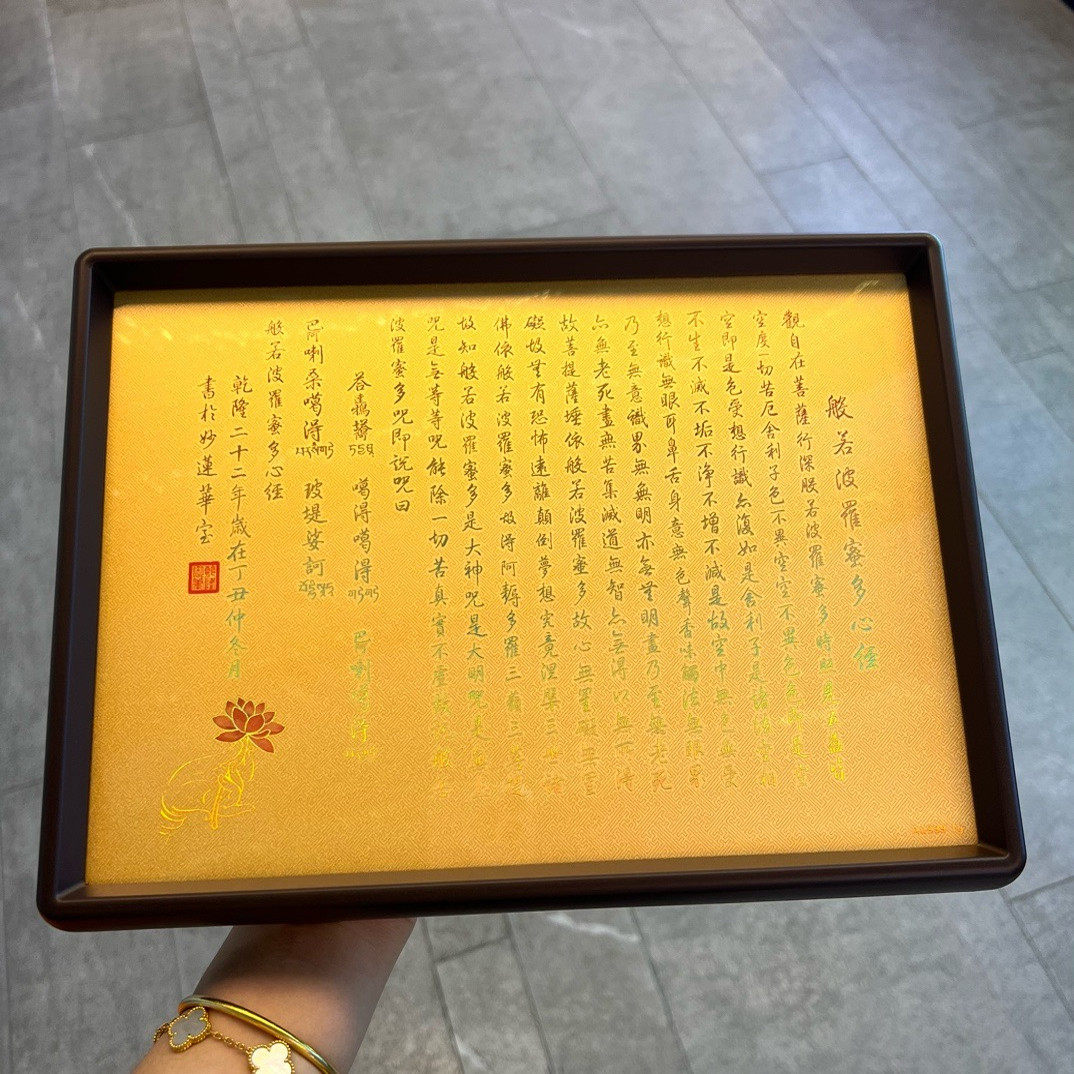 般若波羅蜜多心經
觀自在菩薩行深般若波羅蜜多時照見五蘊皆
空度一切苦厄舍利子色不異空空不異色色即是空
空即是色受想行識亦復如是舍利子是諸法空相
不生不滅不垢不淨不增不減是故空中無色無受
想行識無眼耳鼻舌身意無色聲香味觸法無眼界
乃至無意識界無無明亦無無明盡乃至無老死
亦無老死盡無苦集滅道無智亦無得以無所得
故菩提薩埵依般若波羅蜜多故心無罣礙無罣
礙故無有恐怖遠離顛倒夢想究竟涅槃三世諸
佛依般若波羅蜜多故得阿耨多羅三藐三菩提
故知般若波羅蜜多是大神咒是大明咒是無上
咒是無等等咒能除一切苦真實不虛故說般若
波羅蜜多咒即說咒曰
噶得噶得 喇噶得
喇桑噶得 玻堤娑訶
般若波羅蜜多心經
乾隆二十二年歲在丁丑仲冬月
書於妙蓮華室